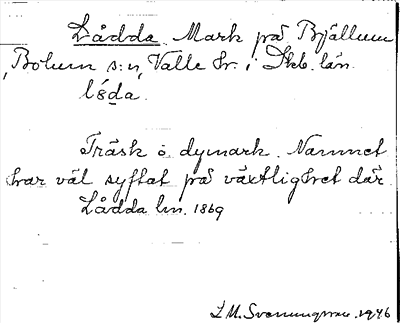 Lådda. Mark på Bjällum
, Bolum s:n, Valle hr. i Skb. län.
lǻda.
Träsk o. dymark. Namnet
har väl syftat på växtlighet där.
Lådda lm. 1869
L M. Svenungsson. 1946